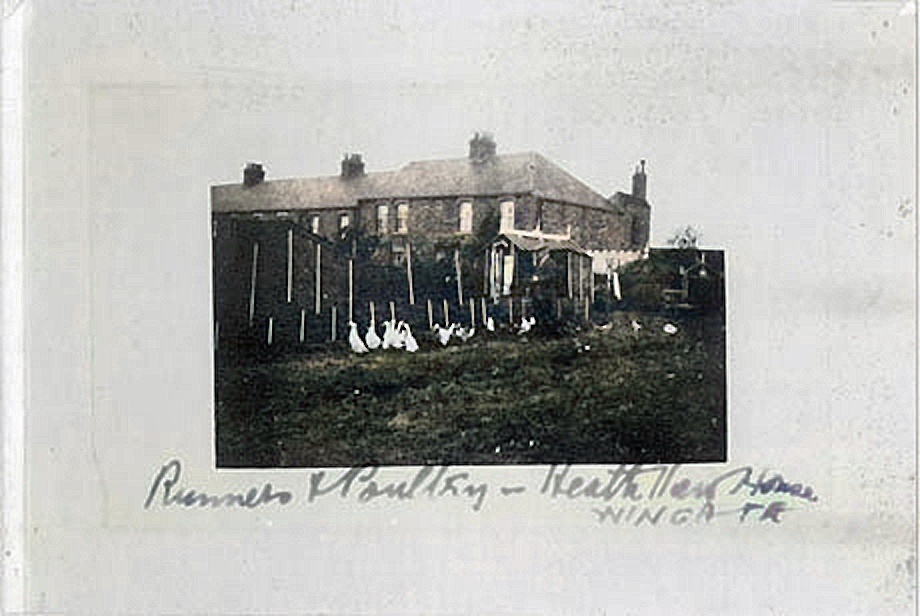 Runners & Poultry – Heath House
WINGATE